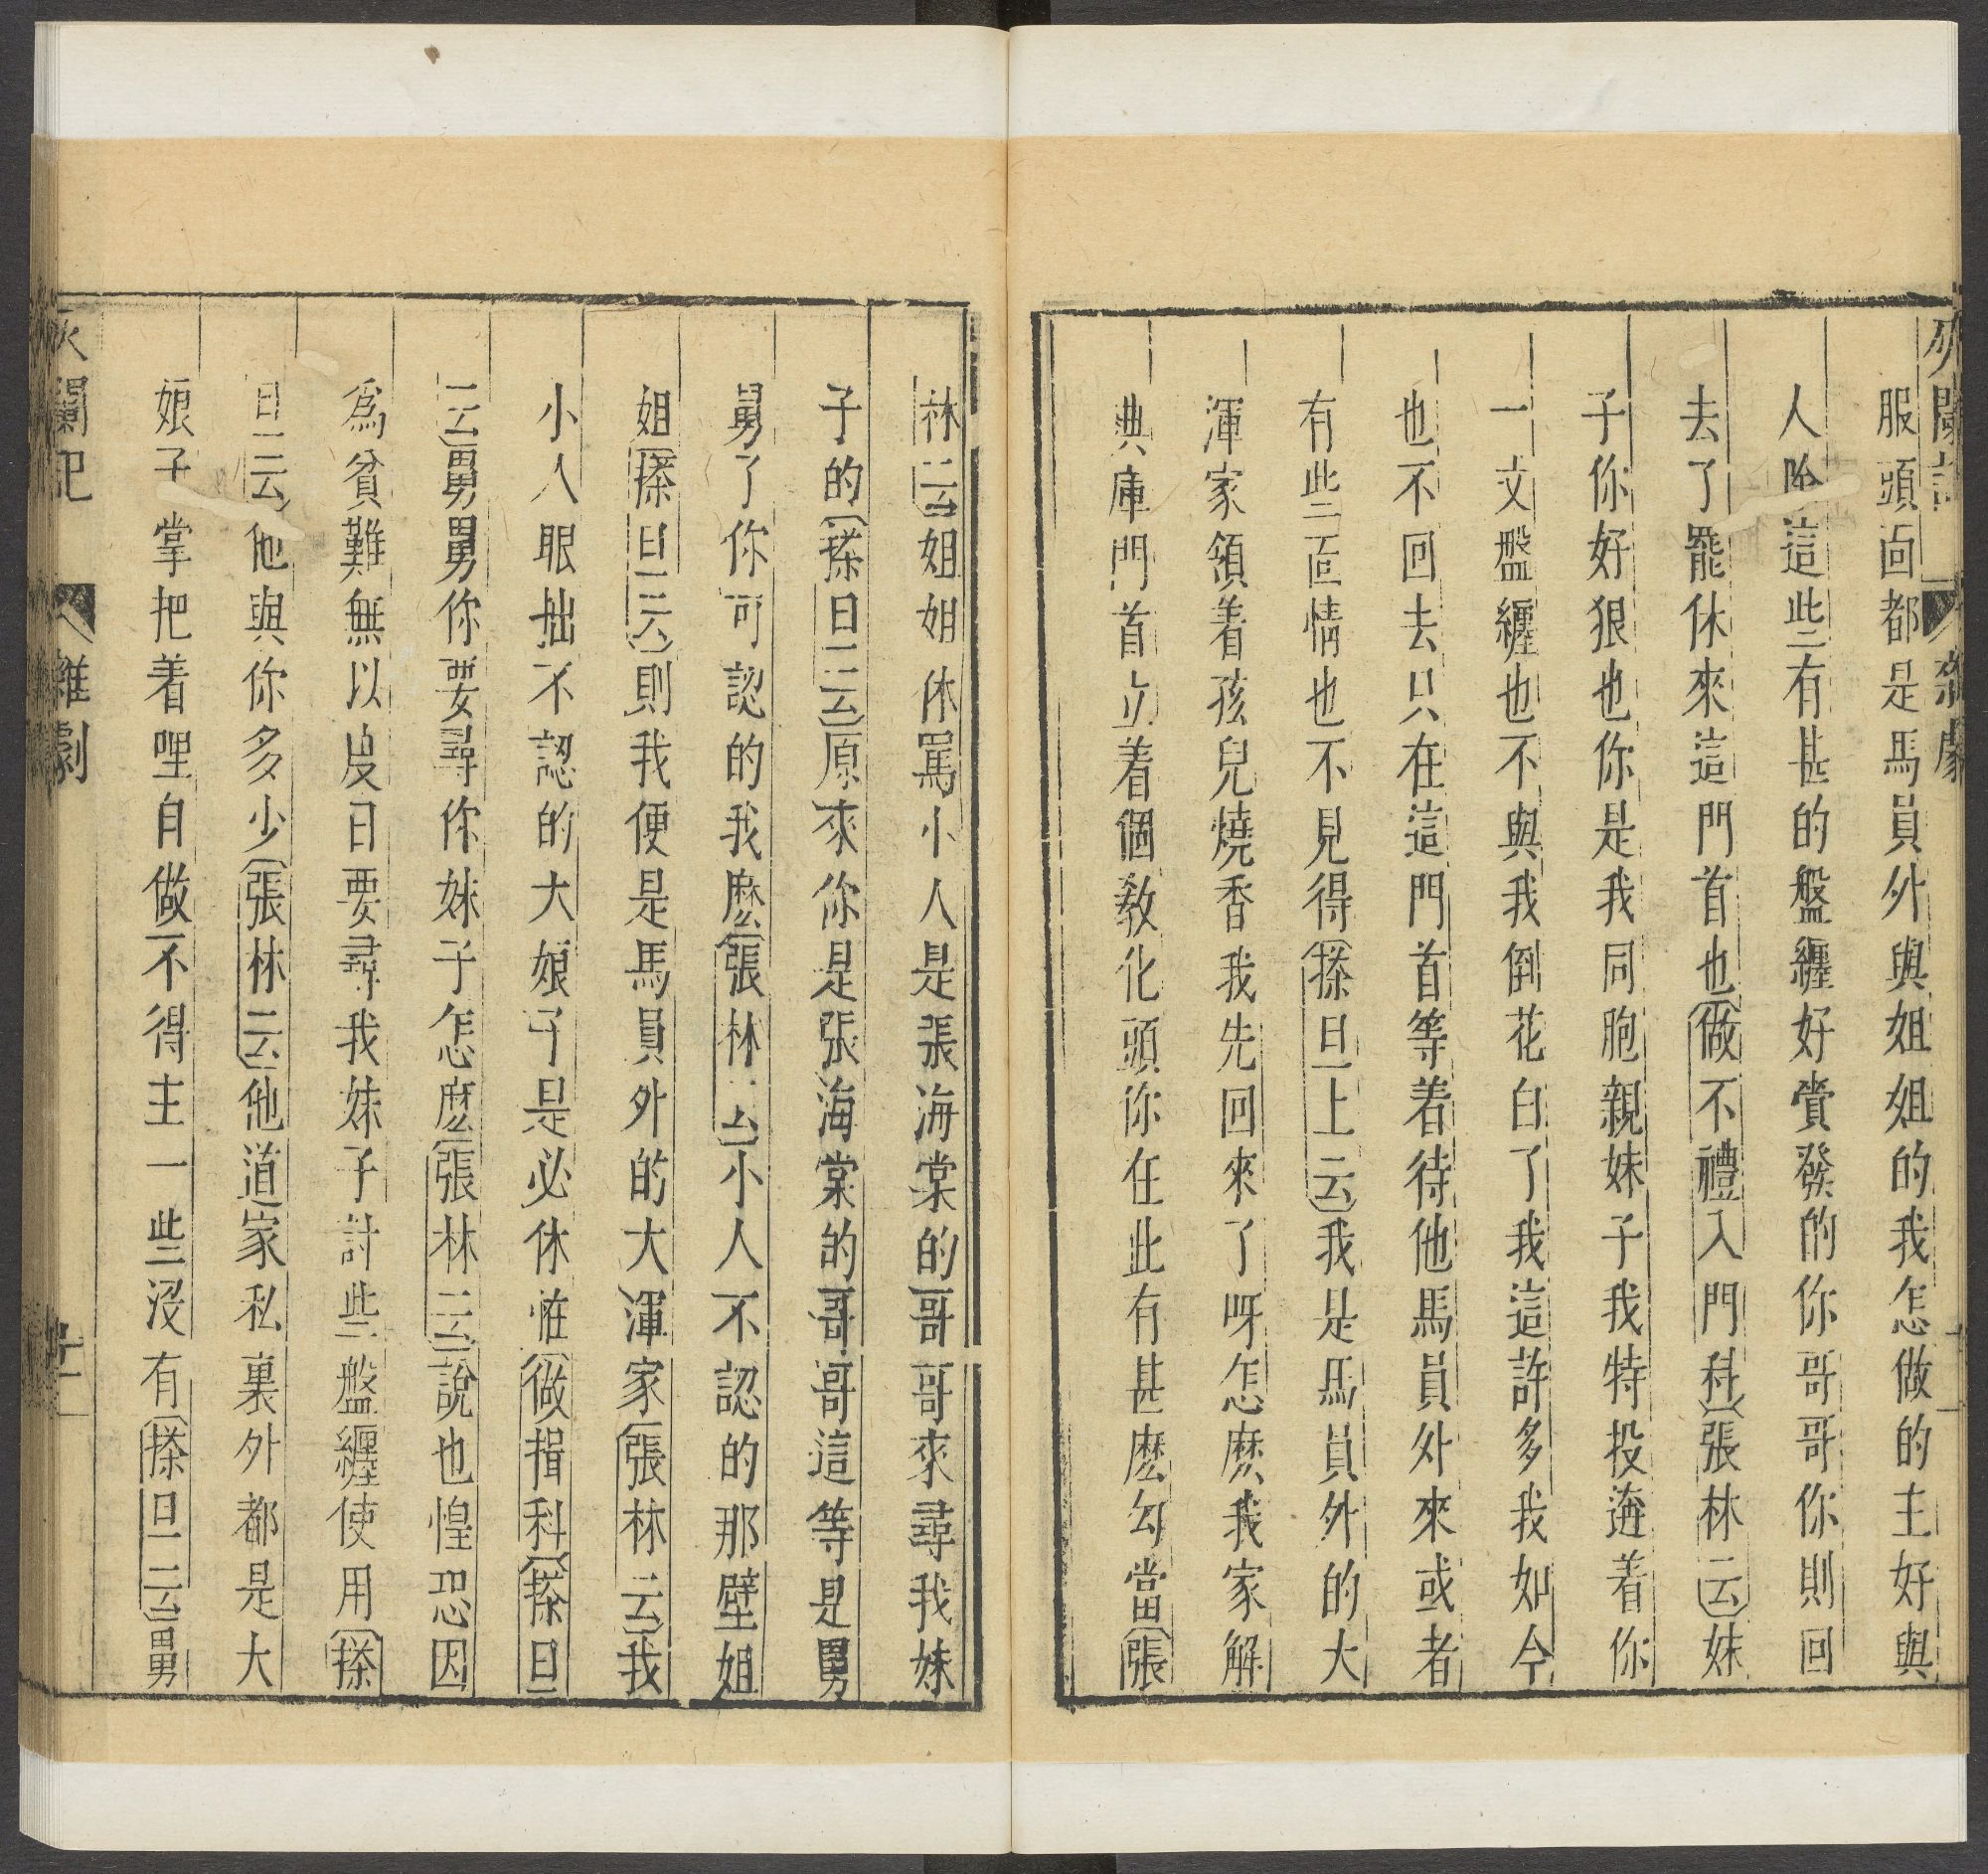 灰闌記 雜劇
服頭面都是馬員外與姐姐的我怎做的主好與
人除這些有甚的盤纏好賫發的你哥哥你則回
去了罷休來這門首也做不禮入門科張林云妹
子你好狠也你是我同胞親妹子我特投逩着你
一文盤纏也不與我倒花白了我這許多我如今
也不回去只在這門首等着待他馬員外來或者
有些面情也不見得搽旦上云我是馬員外的大
渾家領着孩兒燒香我先回來了呀怎麽我家解
典庫門首立着個教化頭你在此有甚麽勾當張
林云姐姐休罵小人是張海棠的哥哥來尋我妹
子的搽旦云原來你是張海棠的哥哥這等是舅
舅了你可認的我麽張林云小人不認的那壁姐
姐搽旦云則我便是馬員外的大渾家張林云我
小人眼拙不認的大娘子是必休恠做揖科搽旦
云舅舅你要尋你妹子怎麽張林云說也惶恐因
爲貧難無以度日要尋我妹子討些盤纏使用搽
旦云他與你多少張林云他道家私裏外都是大
娘子掌把着哩自做不得主一些沒有搽旦云舅
灰闌記 雜劇